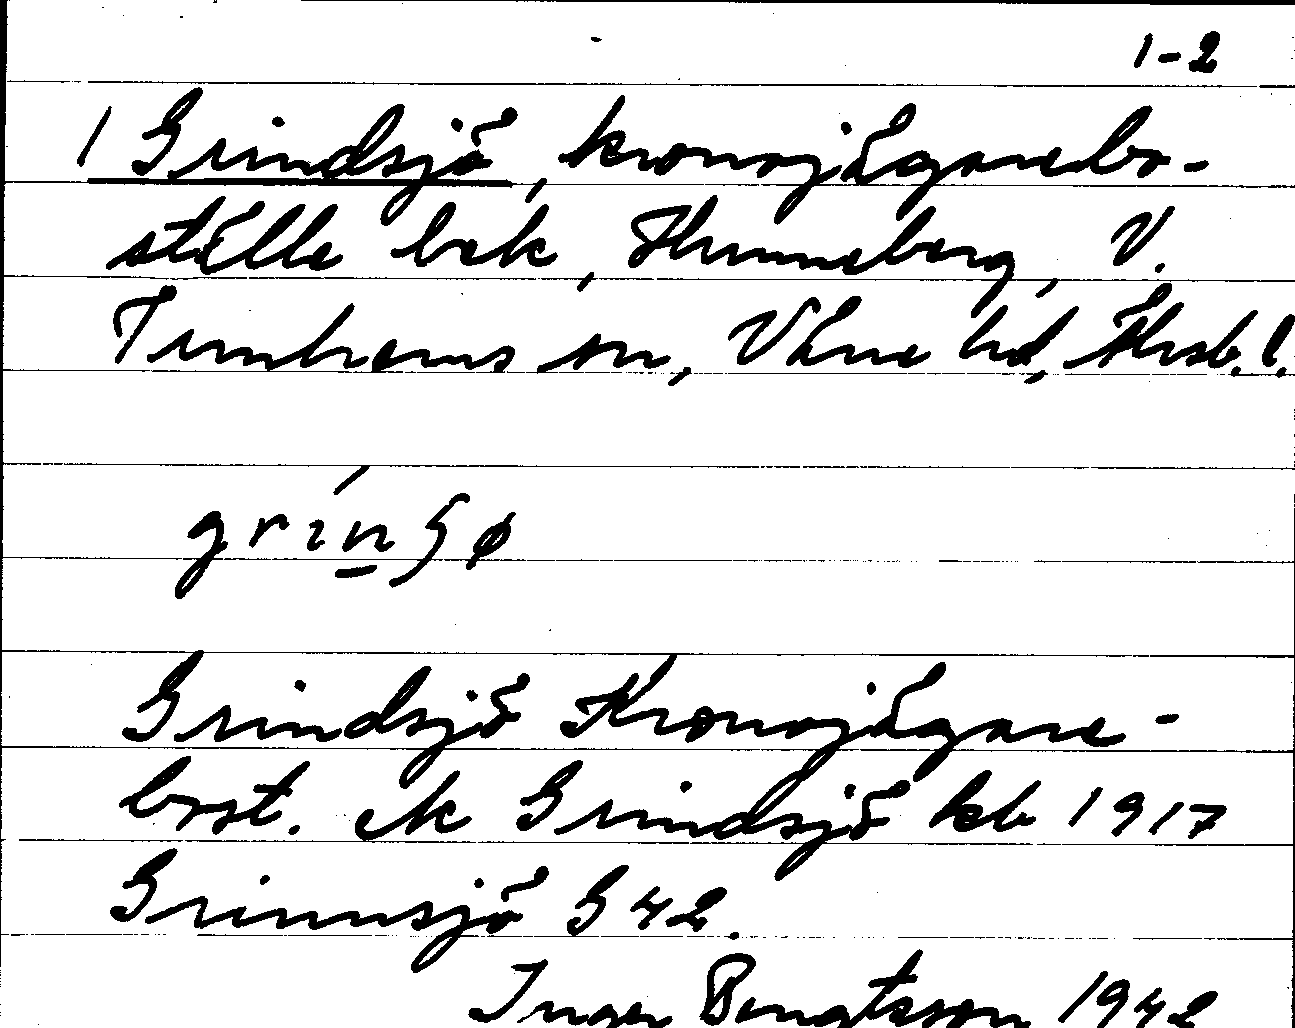 1-2
1 Grindsjö, kronojägarebo-
ställe bek, Hunneberg, V.
Tunhems sn, Väne hd, Älvsb. l.
grinʃø
Grindsjö Kronojägare-
bost. ek Grindsjö kb 1917
Grinnsjö G 42.
Inger Bengtsson 1942